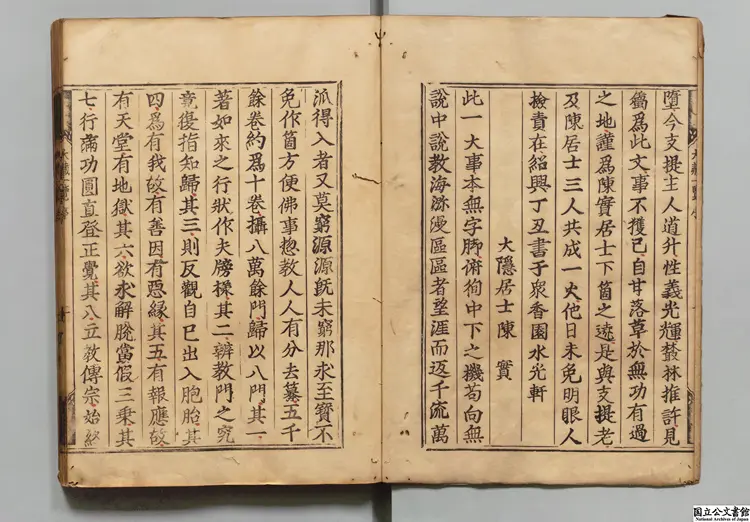 墮今支提主人道升性義光輝叢林推許見
爲此文事不獲已自甘落草於無功有過
之地謹爲陳實居士下箇之遶是與支提老
及陳居士三人共成一火他日未免明眼人
撿責在紹興丁丑書于泉香園水光軒
大隱居士陳 實
此一大事本無字脚俯狥中下之機苟向無
說中說教海瀰漫區區者望涯而返千流萬
派得入者又莫窮源源旣未窮那求至寶不
免作箇方便佛事揔教人人有分去纂五千
餘卷約爲十卷攝八萬餘門歸以八門其一
著如來之行狀作夫牓樣其二辨教門之究
竟復指知歸其三則反觀自己出入胞胎其
四爲有我故有善因有惡緣其五有報應故
有天堂有地獄其六欲求解脫當假三乘其
七行滿功圓直登正覺其八立教傳宗始終
大藏一覽序
国立公文書館
National Archives of Japan